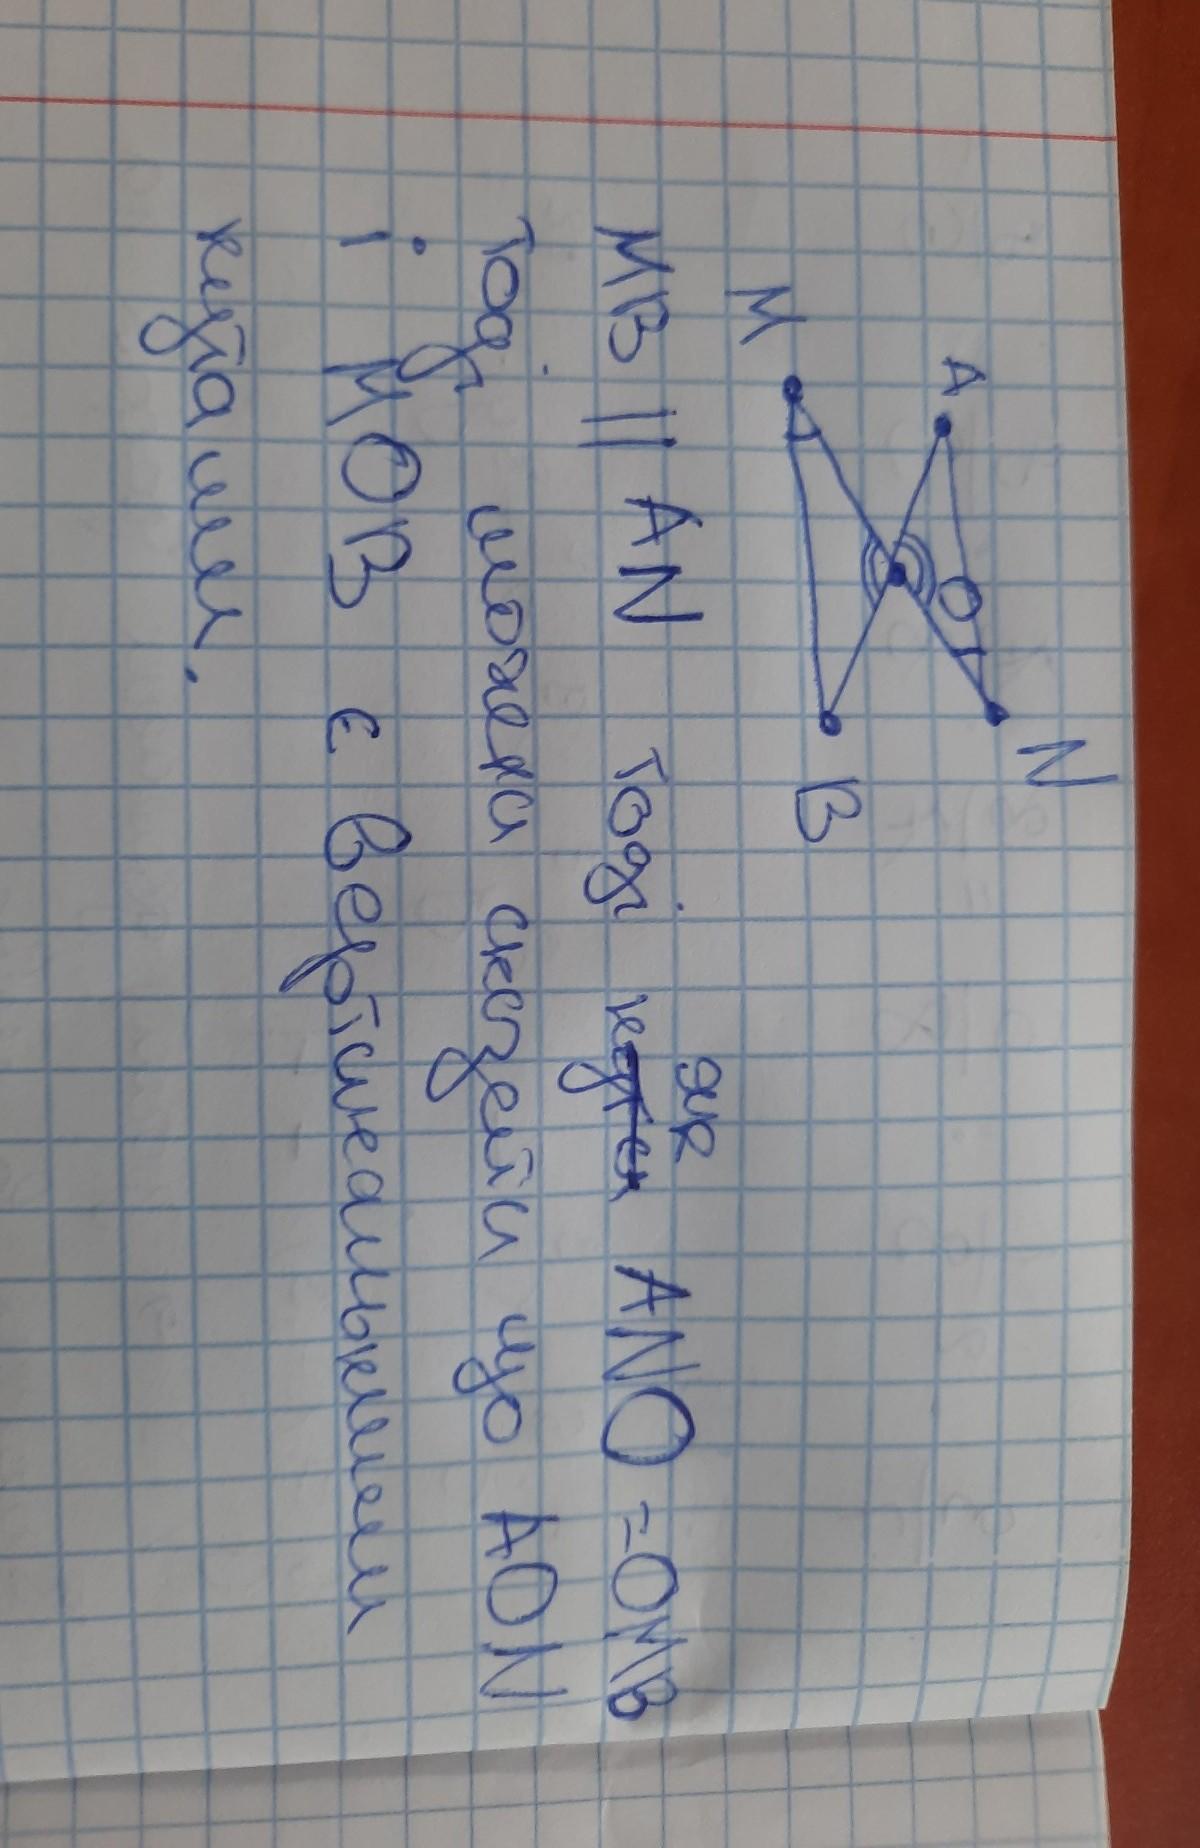 A
N
O
M
B
MB || AN тоді як ANO = OMB
тоді можна сказати що AON
і MOB є вертикальними
кутами.